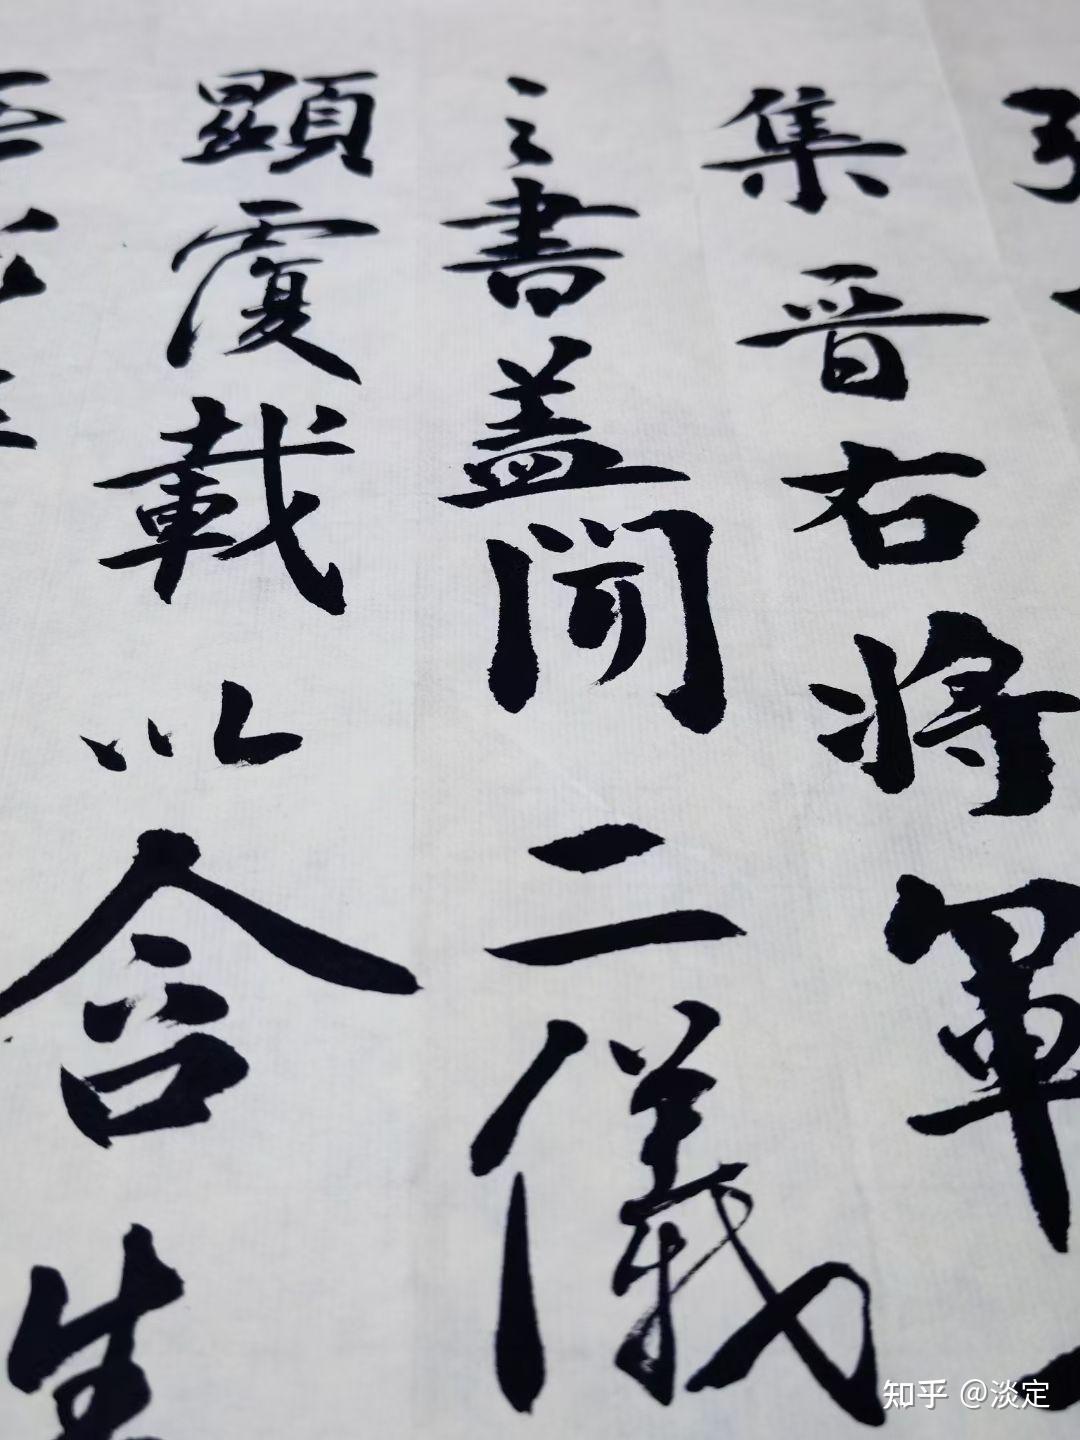 集晋右将軍
之書盖聞二儀
顯覆載以含生
知乎 @淡定